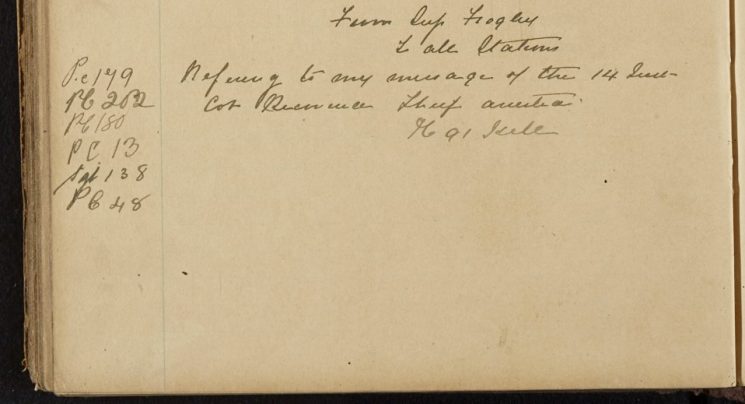 From Sup Frogley
To all Stations
P.c 179
PC 202
PC 180
PC 13
Sgt 138
PC 48
Refering to my message of the 14 Inst
Cot Thief arrested